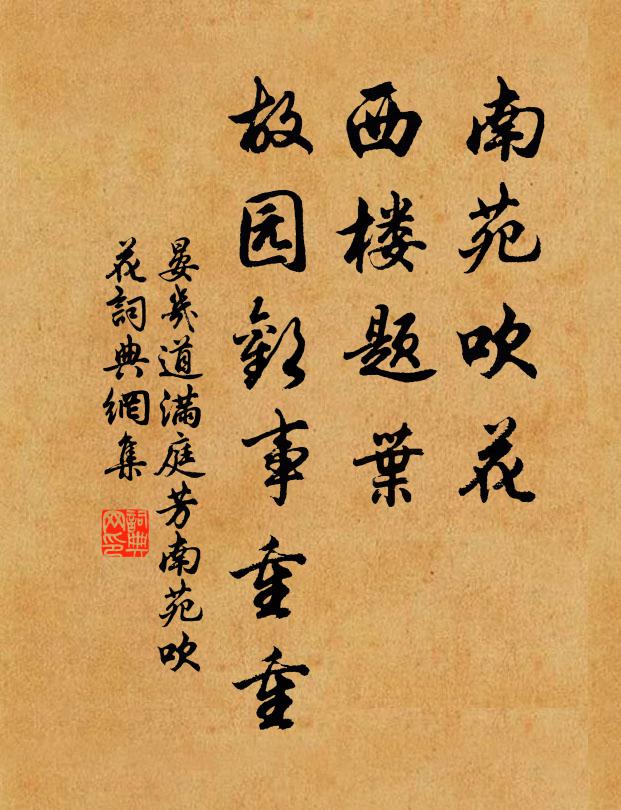 南苑吹花
西楼题葉
故园歡事重重
晏幾道满庭芳南苑吹
花詞典網集
詞典
网印